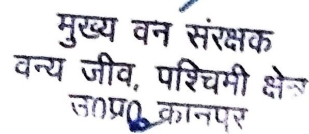 मुख्य वन संरक्षक
वन्य जीव, पश्चिमी क्षेत्र
उ०प्र० कानपुर